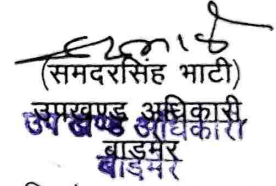 (समदरसिंह भाटी)
उपखण्ड अधिकारी,
उप खण्ड अधिकारी,
बाड़मेर
बाड़मेर